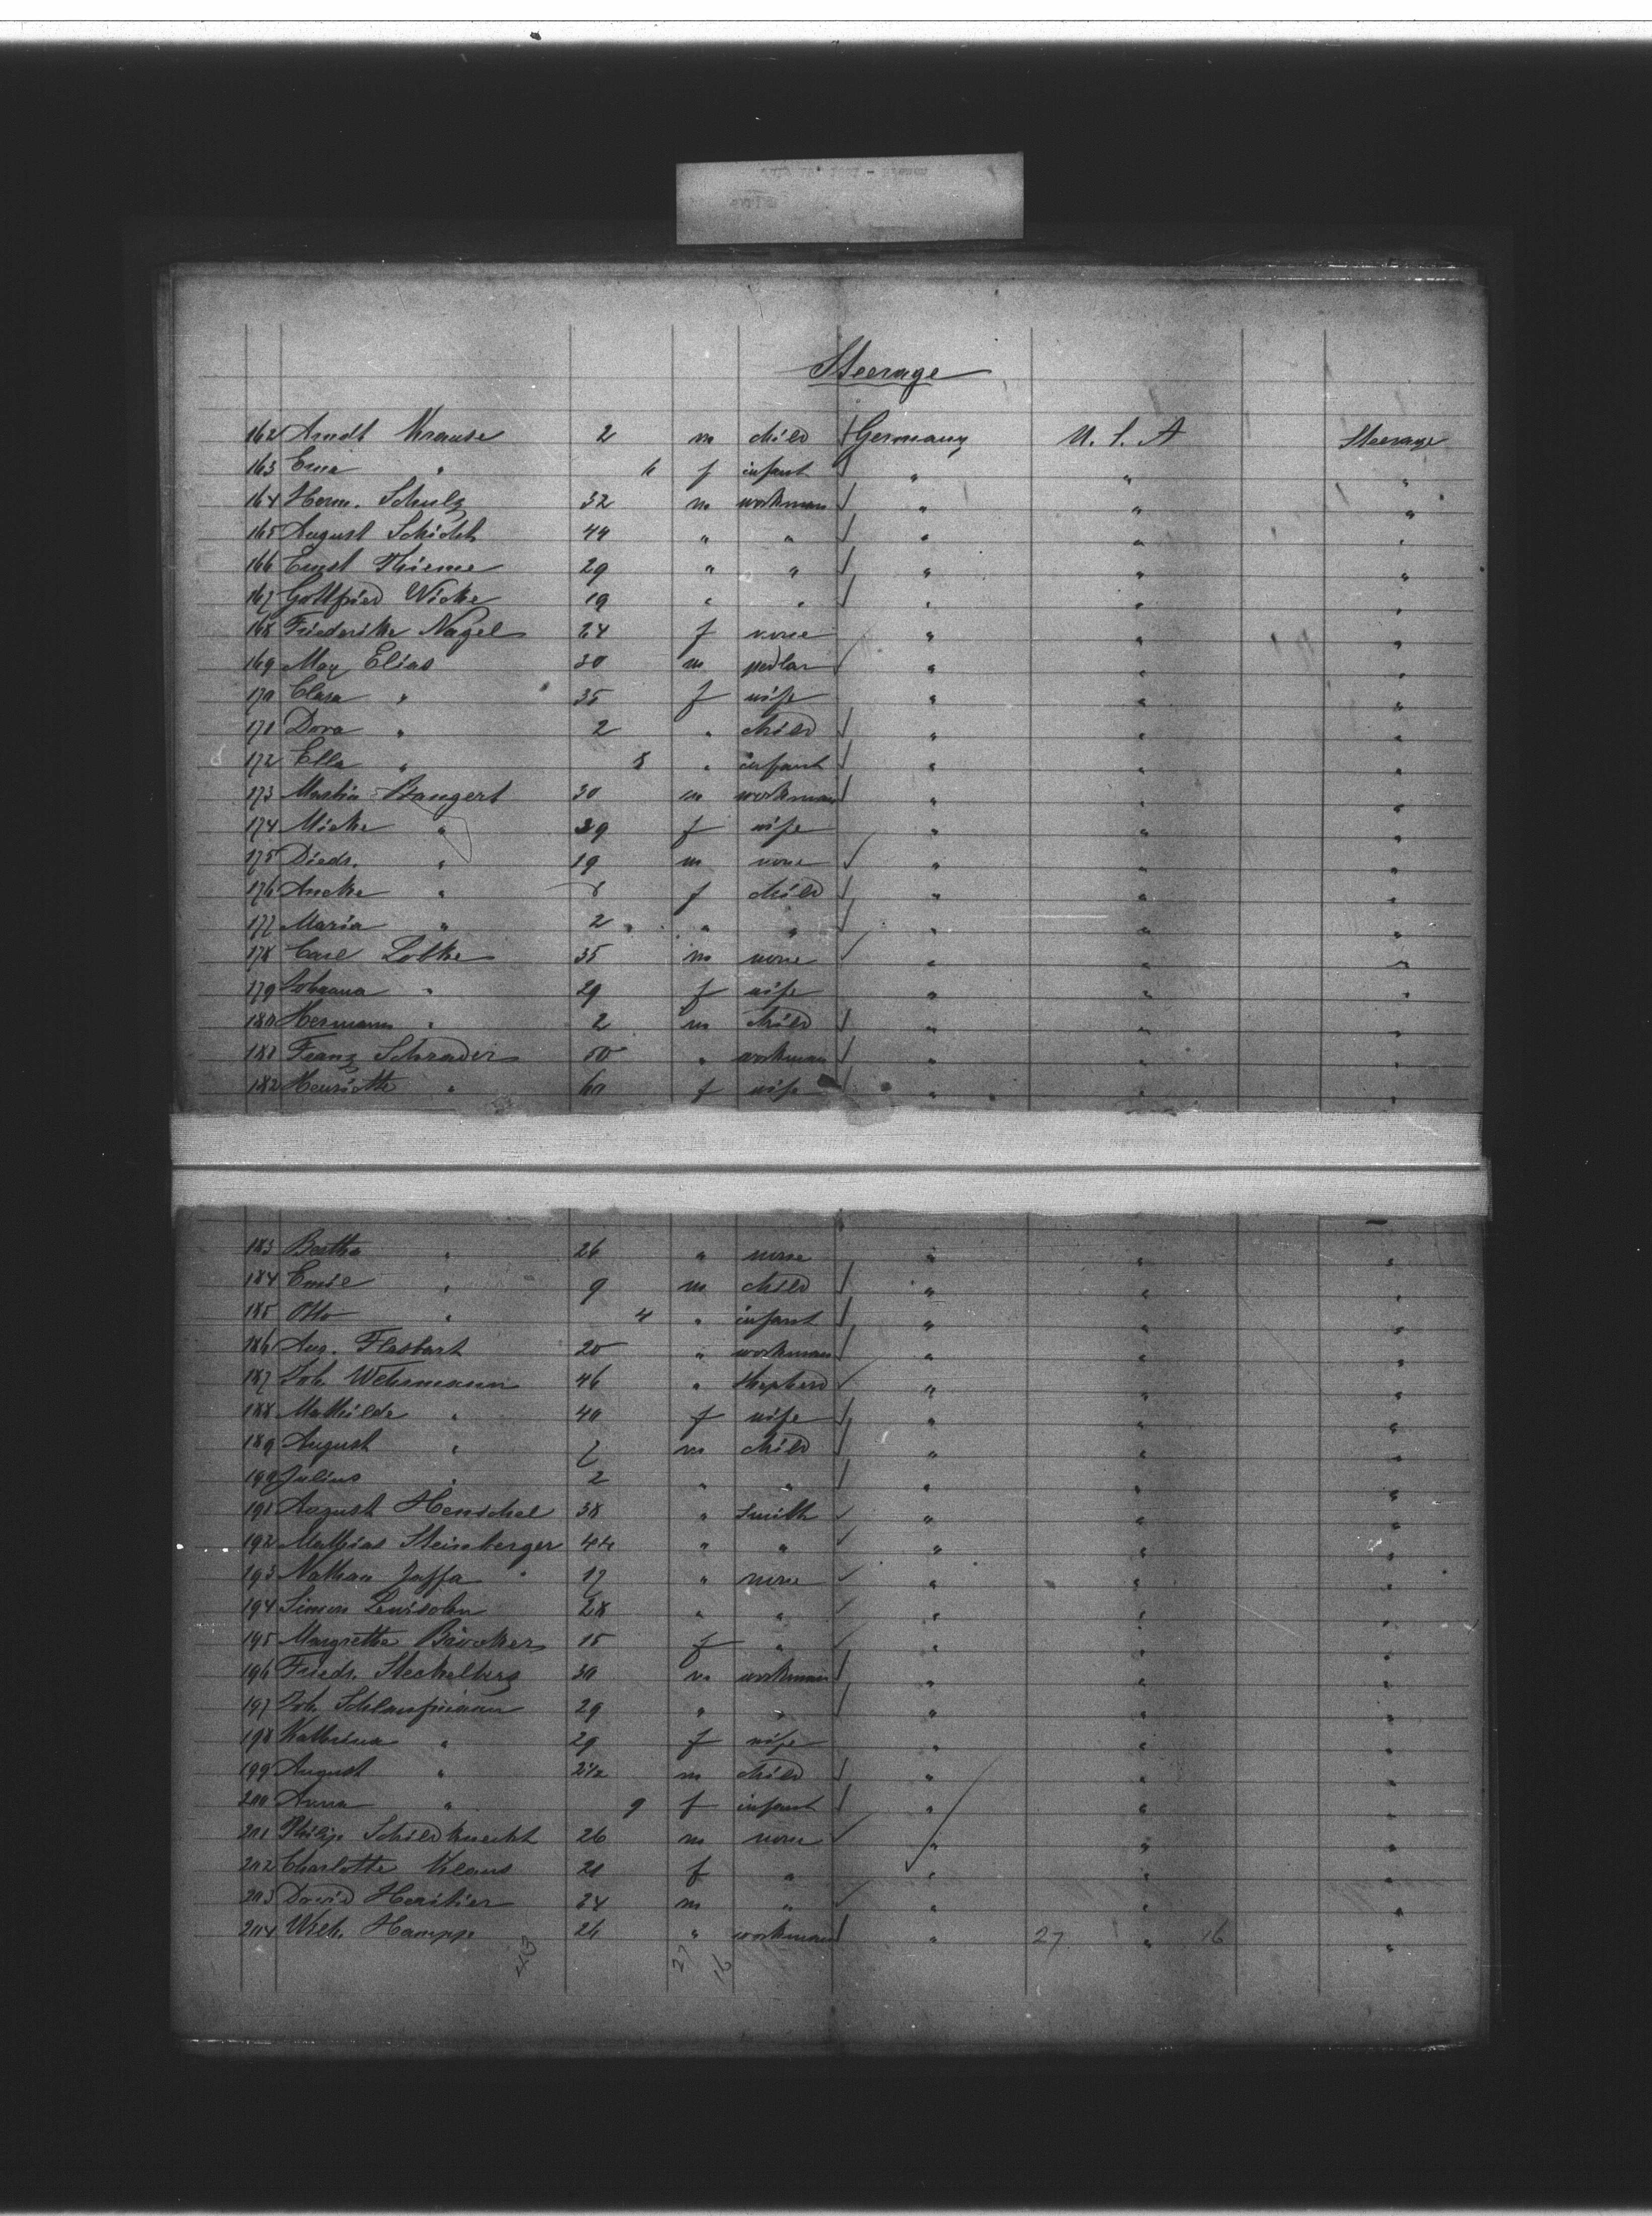 Steerage
162 Arndt Krause 2 m child Germany U. S. A Steerage
163 Erna " 6 f infant " " "
164 Herm. Schulz 32 m workman " " "
165 August Schicht 44 " " " " "
166 Ernst Thieme 29 " " " " "
167 Gottfried Wicke 19 " " " " "
168 Friederike Nagel 24 f none " " "
169 Max Elias 30 m pedlar " " "
170 Clara " 35 f wife " " "
171 Dora " 2 " child " " "
172 Ella " 8 " infant " " "
173 Martin Bangert 30 m workman " " "
174 Micke " 29 f wife " " "
175 Diedr. " 19 m none " " "
176 Ancke " 8 f child " " "
177 Maria " 2 " " " " "
178 Carl Lotke 35 m none " " "
179 Johanna " 29 f wife " " "
180 Hermann " 2 m child " " "
181 Franz Schrader 50 " workman " " "
182 Henriette " 60 f wife " " "
183 Bertha " 26 " none " " "
184 Emil " 9 m child " " "
185 Otto " 4 " infant " " "
186 Aug. Flasbart 20 " workman " " "
187 Joh. Wehrmann 46 " Shepherd " " "
188 Mathilde " 40 f wife " " "
189 August " 7 m child " " "
190 Julius " 2 " " " " "
191 August Henschel 38 " Smith " " "
192 Mathias Steinberger 44 " " " " "
193 Nathan Jaffa 17 " none " " "
194 Simon Lewisohn 28 " " " " "
195 Margrethe Bröcker 15 f " " " "
196 Friedr. Steckelberg 30 m workman " " "
197 Joh. Schlaufmann 29 " " " " "
198 Kathrina " 29 f wife " " "
199 August " 2 1/2 m child " " "
200 Anna " 9 f infant " " "
201 Philip Schildknecht 26 m none " " "
202 Charlotte Klaus 21 f " " " "
203 David Heritier 24 m " " " "
204 Wilh. Hampp 26 " workman " 27 " 16 "
27 16